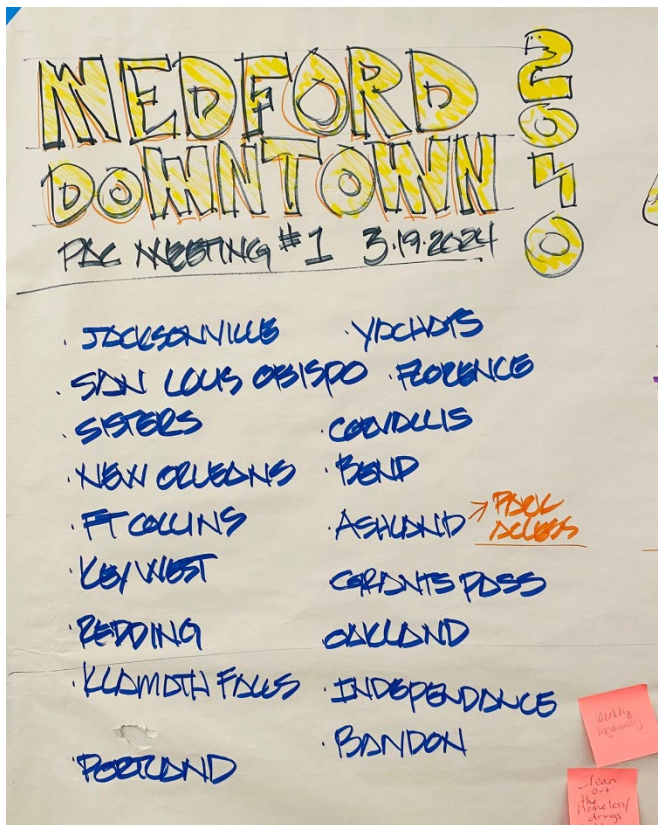 MEDFORD
DOWNTOWN
2040
PAC MEETING #1 3.19.2024
· JACKSONVILLE
· SAN LOUIS OBISPO
· SISTERS
· NEW ORLEANS
· FT COLLINS
· KEY WEST
· REDDING
· KLAMATH FALLS
· PORTLAND
· YACHATS
· FLORENCE
· CORVALLIS
· BEND
· ASHLAND → PARK
ACCESS
GRANTS PASS
OAKLAND
· INDEPENDANCE
· BANDON
Weekly
Clean
out
the
homeless/
drugs